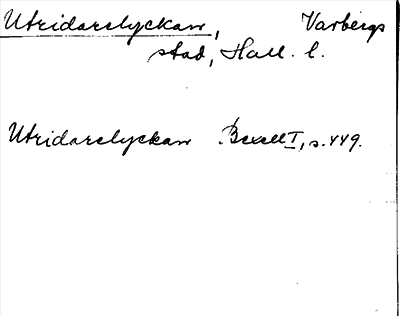 Utridarelyckan, Varbergs
stad, Hall. l.
Utridarelyckan Bexell I, s. 449.